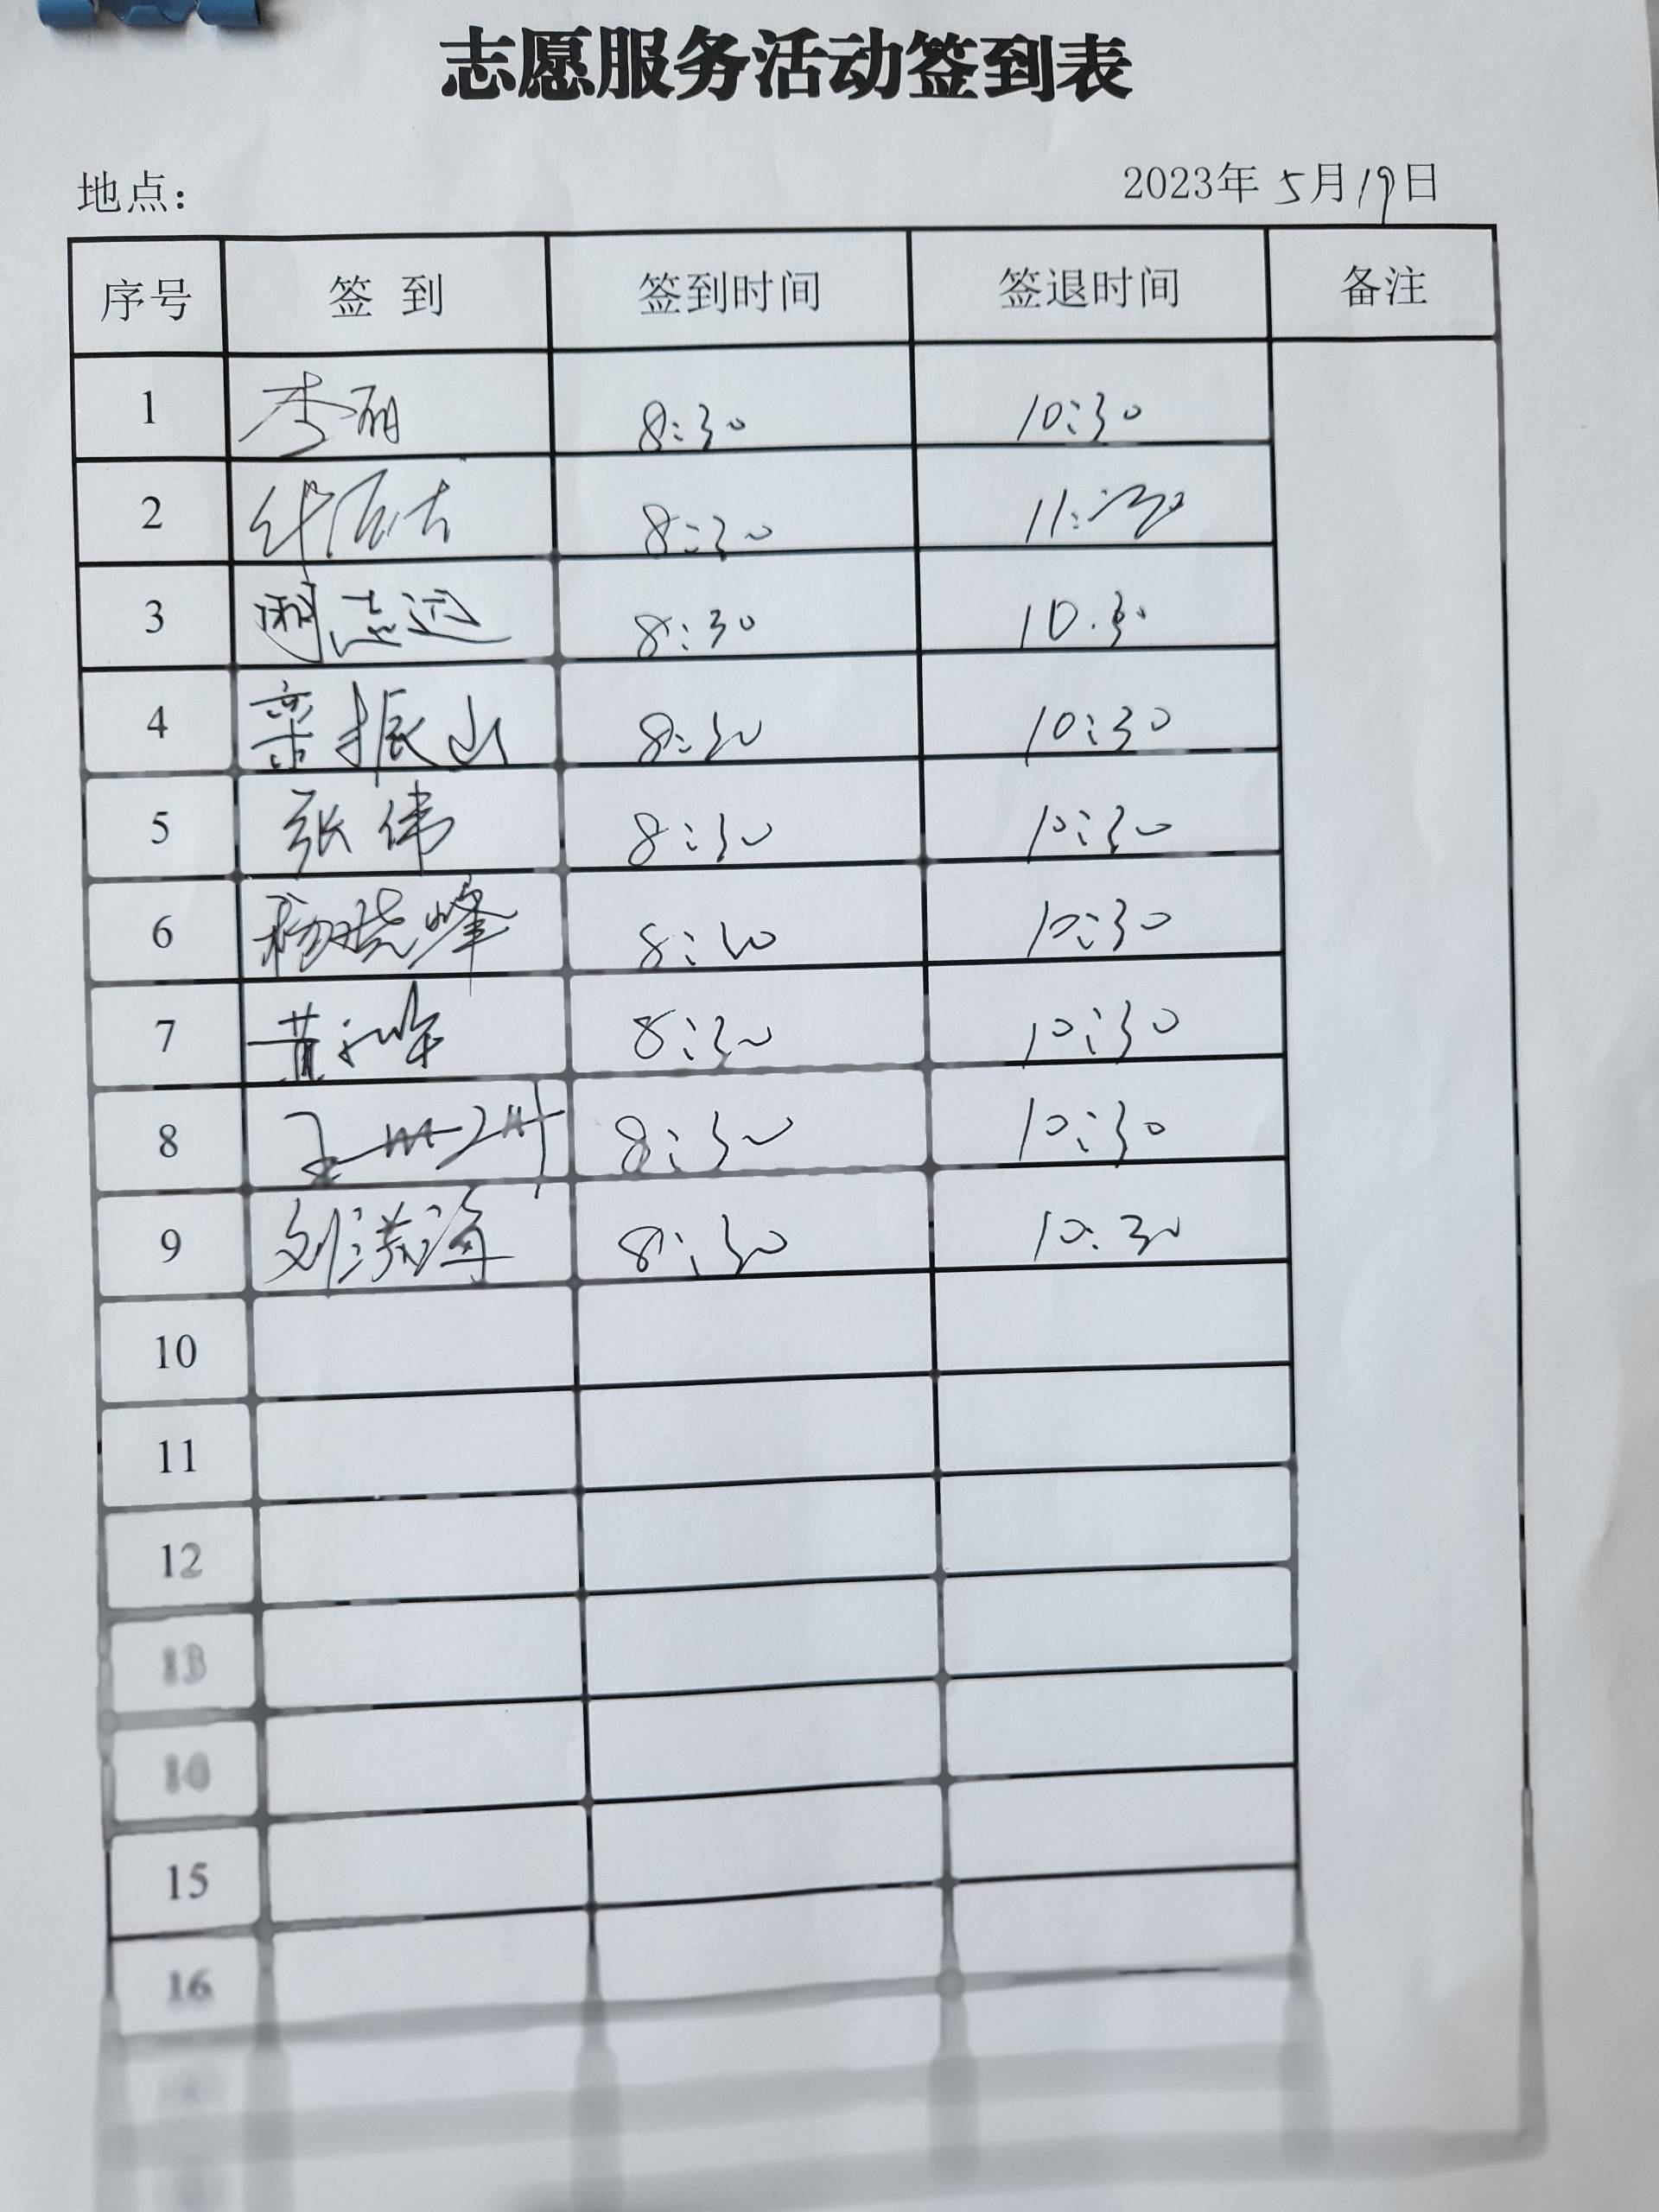 志愿服务活动签到表
地点：
2023年5月19日
序号 签到 签到时间 签退时间 备注
1 李丽 8:30 10:30
2 8:30 11:30
3 周志远 8:30 10.30
4 栾振山 8:30 10:30
5 张伟 8:30 10:30
6 杨晓峰 8:30 10:30
7 黄 8:30 10:30
8 王 8:30 10:30
9 刘洪海 8:30 10:30
10
11
12
13
15
16